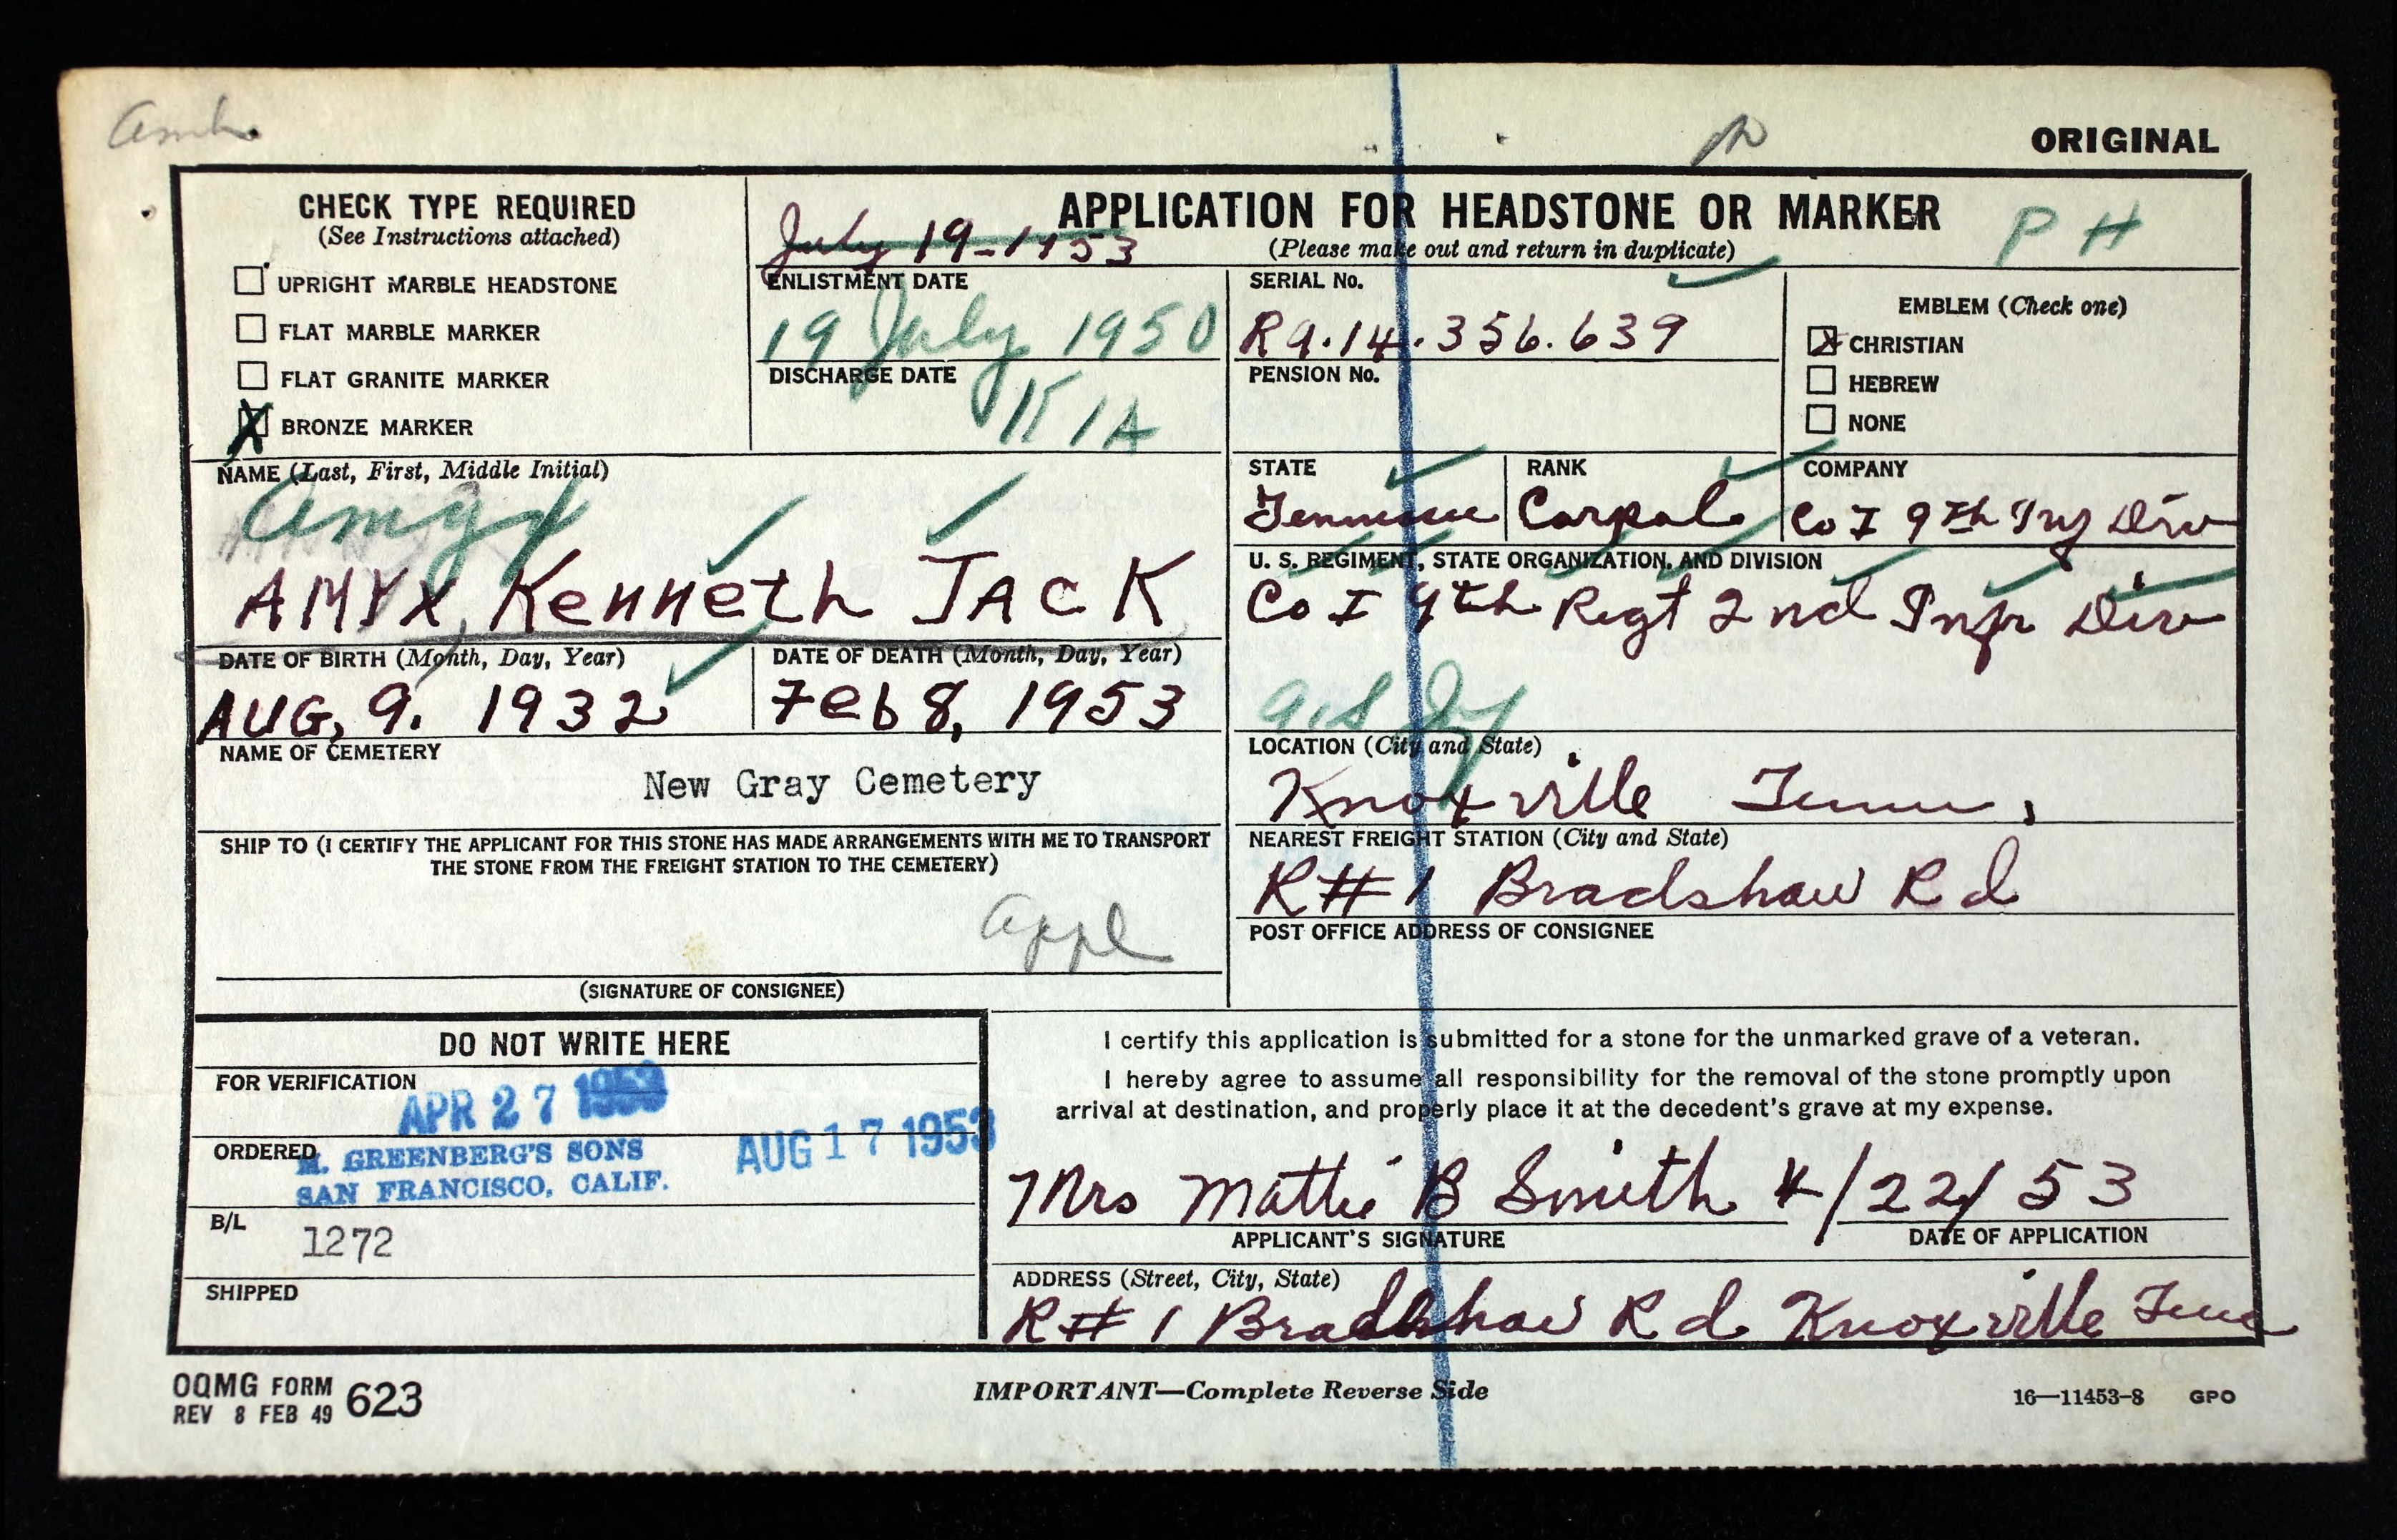 ORIGINAL
CHECK TYPE REQUIRED
(See Instructions attached)
UPRIGHT MARBLE HEADSTONE
FLAT MARBLE MARKER
FLAT GRANITE MARKER
X BRONZE MARKER
APPLICATION FOR HEADSTONE OR MARKER
(Please make out and return in duplicate)
P H
July 19-1953
ENLISTMENT DATE
19 July 1950
DISCHARGE DATE
KIA
SERIAL No.
RA.14.356.639
PENSION No.
EMBLEM (Check one)
X CHRISTIAN
HEBREW
NONE
NAME (Last, First, Middle Initial)
Amyx
AMYX, Kenneth JACK
STATE
Tennessee
RANK
Corpal
COMPANY
Co I 9th Inf Div
U. S. REGIMENT, STATE ORGANIZATION, AND DIVISION
Co I 9th Regt 2nd Infr Div
DATE OF BIRTH (Month, Day, Year)
AUG, 9. 1932
DATE OF DEATH (Month, Day, Year)
Feb 8, 1953
NAME OF CEMETERY
New Gray Cemetery
LOCATION (City and State)
Knoxville Tenn,
SHIP TO (I CERTIFY THE APPLICANT FOR THIS STONE HAS MADE ARRANGEMENTS WITH ME TO TRANSPORT
THE STONE FROM THE FREIGHT STATION TO THE CEMETERY)
appl
(SIGNATURE OF CONSIGNEE)
NEAREST FREIGHT STATION (City and State)
R#1 Bradshaw Rd
POST OFFICE ADDRESS OF CONSIGNEE
DO NOT WRITE HERE
FOR VERIFICATION
APR 27 1953
ORDERED
M. GREENBERG'S SONS
SAN FRANCISCO, CALIF.
AUG 17 1953
B/L
1272
SHIPPED
I certify this application is submitted for a stone for the unmarked grave of a veteran.
I hereby agree to assume all responsibility for the removal of the stone promptly upon
arrival at destination, and properly place it at the decedent's grave at my expense.
Mrs Mattie B Smith 4/22/53
APPLICANT'S SIGNATURE
DATE OF APPLICATION
ADDRESS (Street, City, State)
R#1 Bradshaw Rd Knoxville Tenn
OQMG FORM 623
REV 8 FEB 49
IMPORTANT—Complete Reverse Side
16—11453-8 GPO